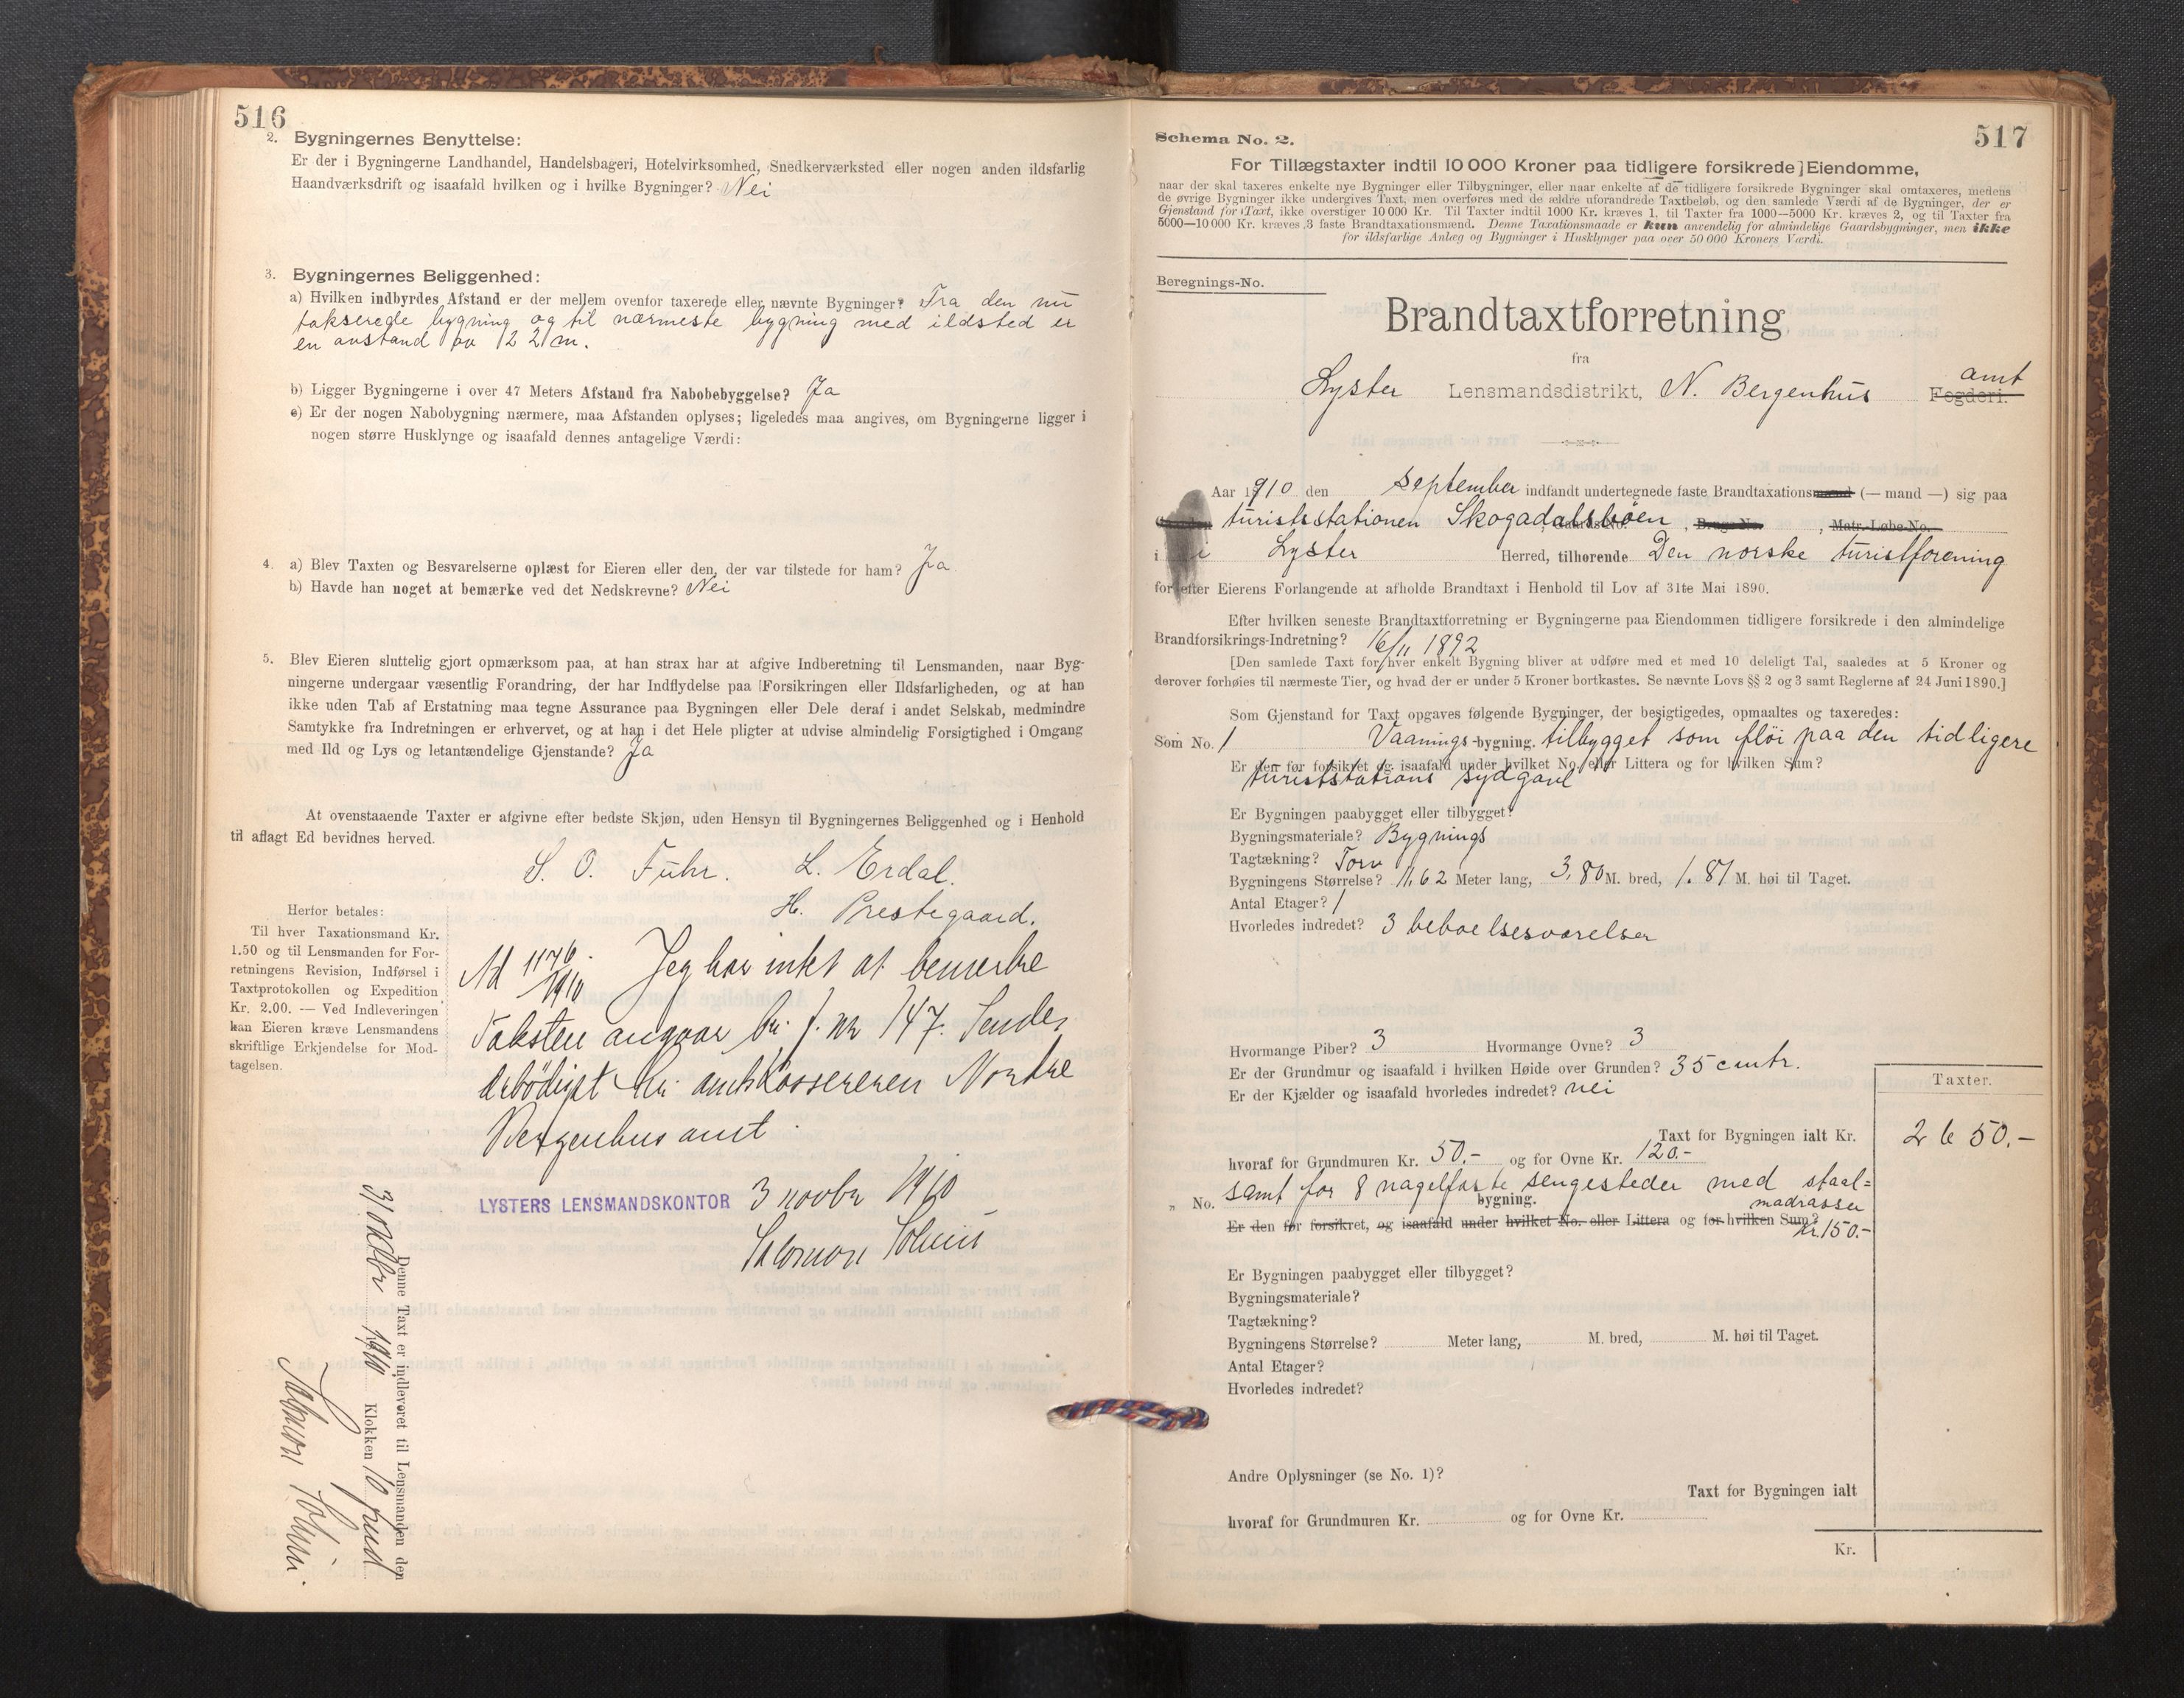 516
2. Bygningernes Benyttelse:
Er der i Bygningerne Landhandel, Handelsbageri, Hotelvirksomhed, Snedkerværksted eller nogen anden ildsfarlig
Haandværksdrift og isaafald hvilken og i hvilke Bygninger? Nei
3. Bygningernes Beliggenhed:
a) Hvilken indbyrdes Afstand er der mellem ovenfor taxerede eller nævnte Bygninger? Fra den nu
takserede bygning og til nærmeste bygning med ildsted er
en avstand av 12 2/m.
b) Ligger Bygningerne i over 47 Meters Afstand fra Nabobebyggelse? Ja
c) Er der nogen Nabobygning nærmere, maa Afstanden oplyses; ligeledes maa angives, om Bygningerne ligger i
nogen større Husklynge og isaafald dennes antagelige Værdi:
4. a) Blev Taxten og Besvarelserne oplæst for Eieren eller den, der var tilstede for ham? Ja
b) Havde han noget at bemærke ved det Nedskrevne? Nei
5. Blev Eieren sluttelig gjort opmærksom paa, at han strax har at afgive Indberetning til Lensmanden, naar Byg-
ningerne undergaar væsentlig Forandring, der har Indflydelse paa Forsikringen eller Ildsfarligheden, og at han
ikke uden Tab af Erstatning maa tegne Assurance paa Bygningen eller Dele deraf i andet Selskab, medmindre
Samtykke fra Indretningen er erhvervet, og at han i det Hele pligter at udvise almindelig Forsigtighed i Omgang
med Ild og Lys og letantændelige Gjenstande? Ja
At ovenstaaende Taxter er afgivne efter bedste Skjøn, uden Hensyn til Bygningernes Beliggenhed og i Henhold
til aflagt Ed bevidnes herved.
S. O. Fuhr. L. Erdal.
H. Prestegaard.
Herfor betales:
Til hver Taxationsmand Kr.
1.50 og til Lensmanden for For-
retningens Revision, Indførsel i
Taxtprotokollen og Expedition
Kr. 2.00. — Ved Indleveringen
kan Eieren kræve Lensmandens
skriftlige Erkjendelse for Mod-
tagelsen.
Ad 1176/1910. Jeg har intet at bemerke
Taksten angaar br. f. nr 147. Sendes
ærbödigst hr. amtskassereren Nordre
Bergenhus amt.
LYSTERS LENSMANDSKONTOR 3 novbr 1910
Salomon
Denne Taxt er indleveret til Lensmanden den
31 oktbr 1910 Klokken 10 fmd
Salomon
517
Schema No. 2.
For Tillægstaxter indtil 10 000 Kroner paa tidligere forsikrede Eiendomme,
naar der skal taxeres enkelte nye Bygninger eller Tilbygninger, eller naar enkelte af de tidligere forsikrede Bygninger skal omtaxeres, medens
de øvrige Bygninger ikke undergives Taxt, men overføres med de ældre uforandrede Taxtbeløb, og den samlede Værdi af de Bygninger, der er
Gjenstand for Taxt, ikke overstiger 10 000 Kr. Til Taxter indtil 1000 Kr. kræves 1, til Taxter fra 1000—5000 Kr. kræves 2, og til Taxter fra
5000—10 000 Kr. kræves 3 faste Brandtaxationsmænd. Denne Taxationsmaade er kun anvendelig for almindelige Gaardsbygninger, men ikke
for ildsfarlige Anlæg og Bygninger i Husklynger paa over 50 000 Kroners Værdi.
Beregnings-No.
Brandtaxtforretning
fra
Lyster Lensmandsdistrikt, N. Bergenhus Fogderi. amt
Aar 1910 den september indfandt undertegnede faste Brandtaxationsmænd (— mand —) sig paa
turiststationen Skogadalsböen, Gaards-No. , Brugs-No. , Matr.-Løbe-No.
i Lyster Herred, tilhørende Den norske turistforening
for efter Eierens Forlangende at afholde Brandtaxt i Henhold til Lov af 31te Mai 1890.
Efter hvilken seneste Brandtaxtforretning er Bygningerne paa Eiendommen tidligere forsikrede i den almindelige
Brandforsikrings-Indretning? 16/11 1892
[Den samlede Taxt for hver enkelt Bygning bliver at udføre med et med 10 deleligt Tal, saaledes at 5 Kroner og
derover forhøies til nærmeste Tier, og hvad der er under 5 Kroner bortkastes. Se nævnte Lovs §§ 2 og 3 samt Reglerne af 24 Juni 1890.]
Som Gjenstand for Taxt opgaves følgende Bygninger, der besigtigedes, opmaaltes og taxeredes:
Som No. 1 Vaanings-bygning. tilbygget som flöi paa den tidligere
Er den før forsikret og isaafald under hvilket No. eller Littera og for hvilken Sum?
turiststations sydgavl
Er Bygningen paabygget eller tilbygget?
Bygningsmateriale? Bygnings
Tagtækning? Torv
Bygningens Størrelse? 11,62 Meter lang, 3,80 M. bred, 1.81 M. høi til Taget.
Antal Etager? 1
Hvorledes indredet? 3 beboelsesværelser
Hvormange Piber? 3 Hvormange Ovne? 3
Er der Grundmur og isaafald i hvilken Høide over Grunden? 35 cmtr.
Er der Kjælder og isaafald hvorledes indredet? nei
Taxter.
Taxt for Bygningen ialt Kr. 2650.-
hvoraf for Grundmuren Kr. 50.- og for Ovne Kr. 120.-
samt for 8 nagelfaste sengesteder med staal=
madrasser
„ No. bygning.
Er den før forsikret, og isaafald under hvilket No. eller Littera og for hvilken Sum?
kr. 150.-
Er Bygningen paabygget eller tilbygget?
Bygningsmateriale?
Tagtækning?
Bygningens Størrelse? Meter lang, M. bred, M. høi til Taget.
Antal Etager?
Hvorledes indredet?
Andre Oplysninger (se No. 1)?
Taxt for Bygningen ialt
hvoraf for Grundmuren Kr. og for Ovne Kr.
Kr.